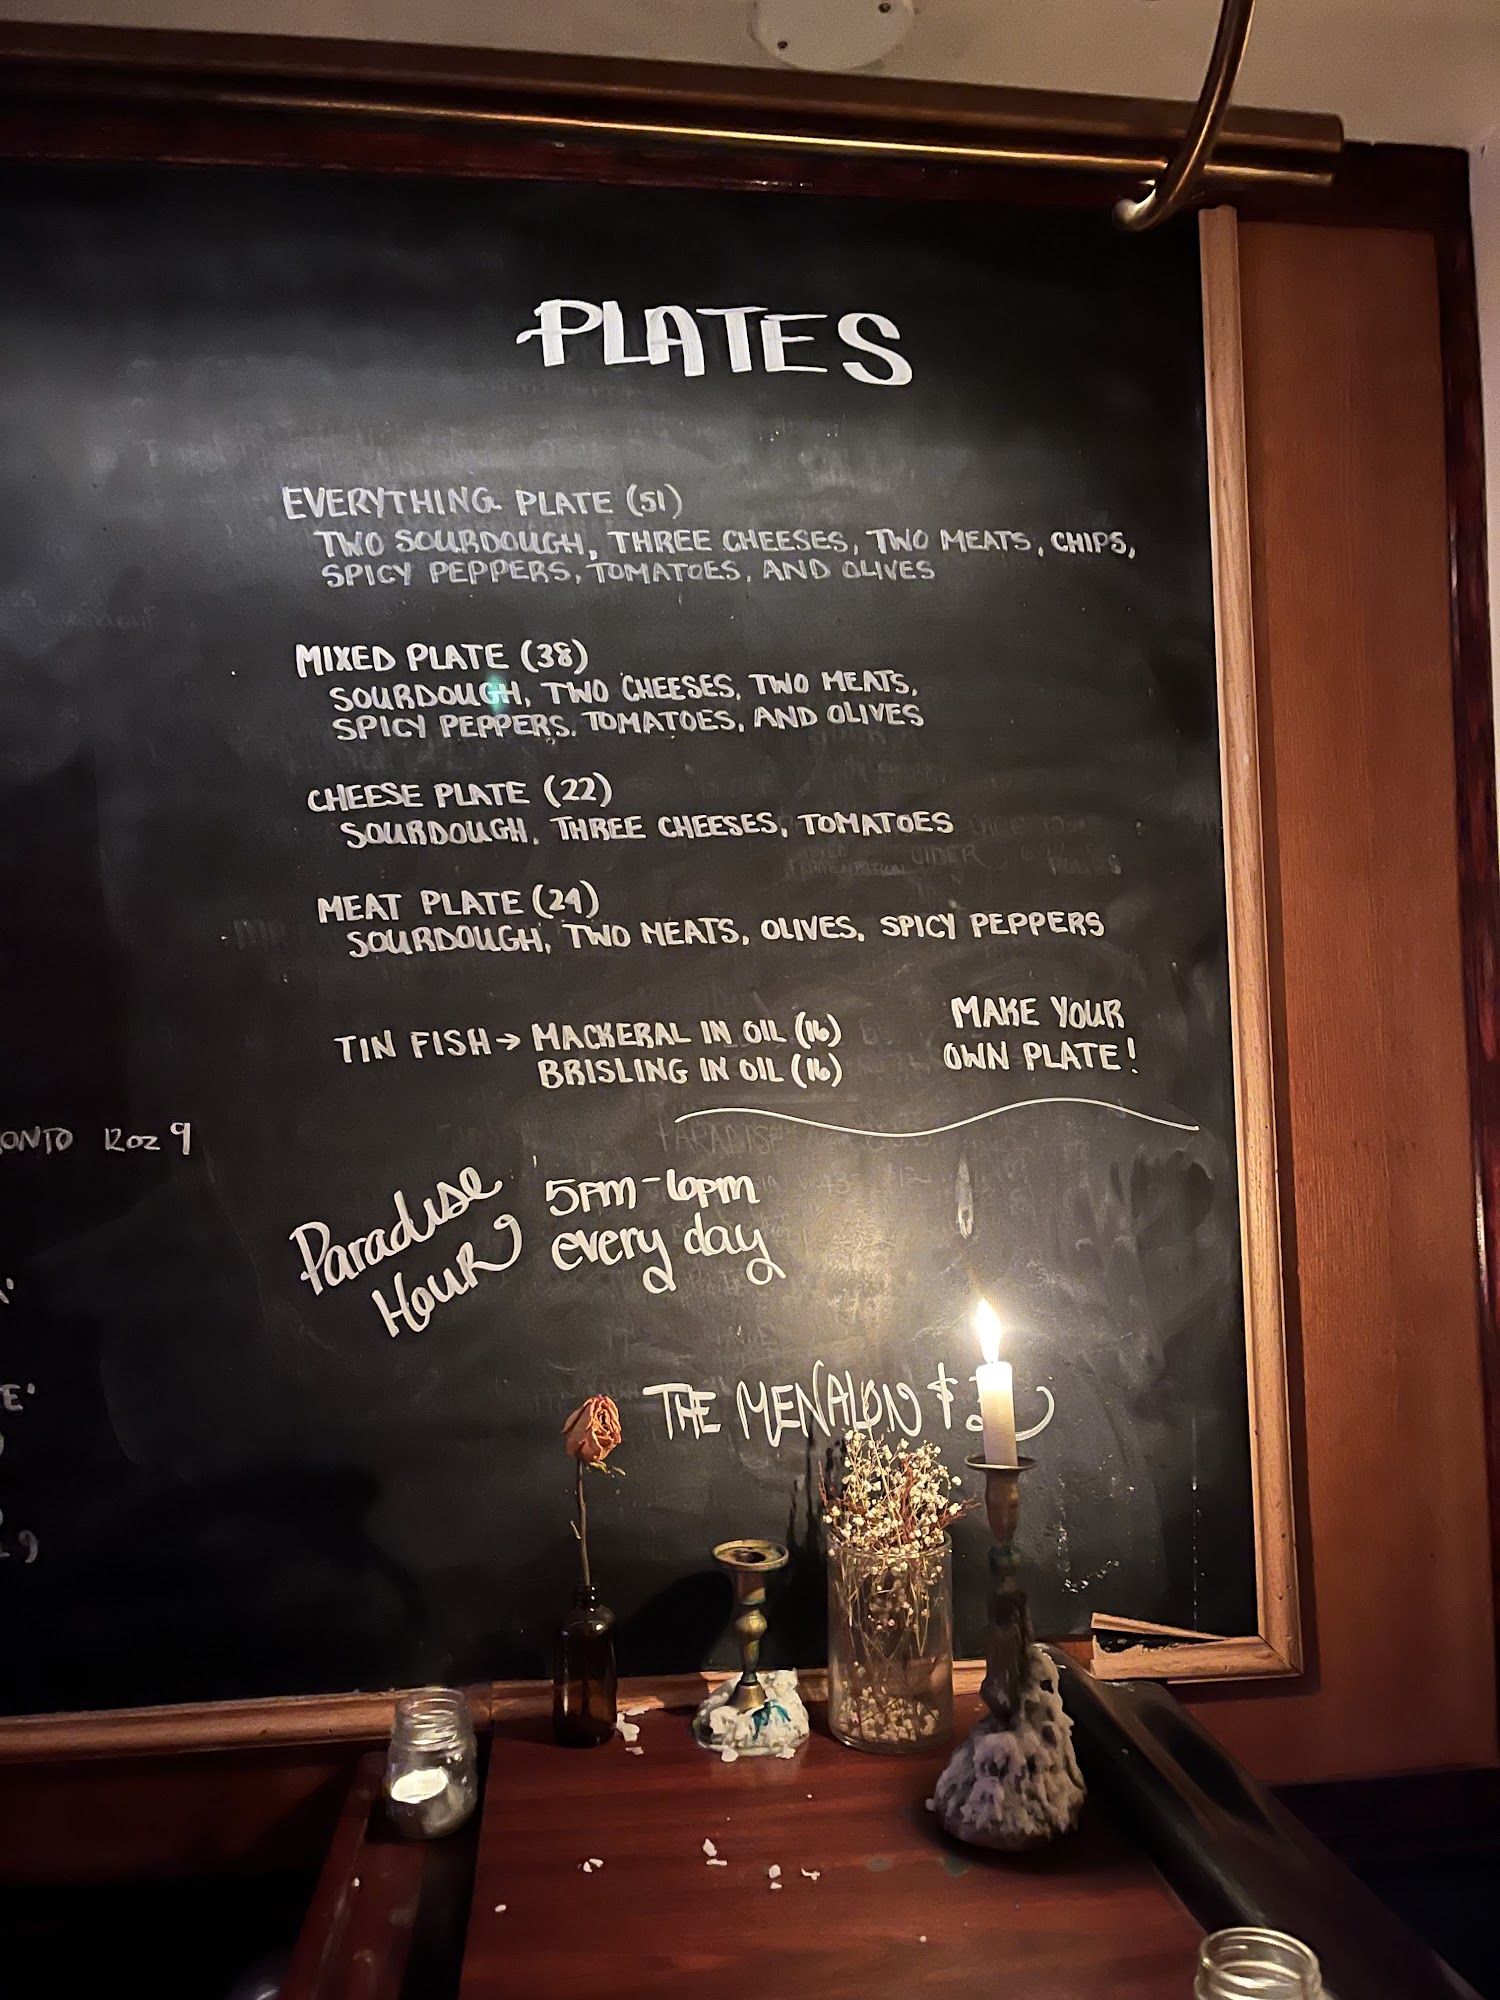 PLATES
EVERYTHING PLATE (51)
TWO SOURDOUGH, THREE CHEESES, TWO MEATS, CHIPS,
SPICY PEPPERS, TOMATOES, AND OLIVES
MIXED PLATE (38)
SOURDOUGH, TWO CHEESES, TWO MEATS,
SPICY PEPPERS, TOMATOES, AND OLIVES
CHEESE PLATE (22)
SOURDOUGH, THREE CHEESES, TOMATOES
MEAT PLATE (24)
SOURDOUGH, TWO MEATS, OLIVES, SPICY PEPPERS
TIN FISH → MACKERAL IN OIL (16)
BRISLING IN OIL (16)
MAKE YOUR
OWN PLATE!
ONTO 12OZ 9
Paradise
Hour
5pm-6pm
every day
THE MENALON $